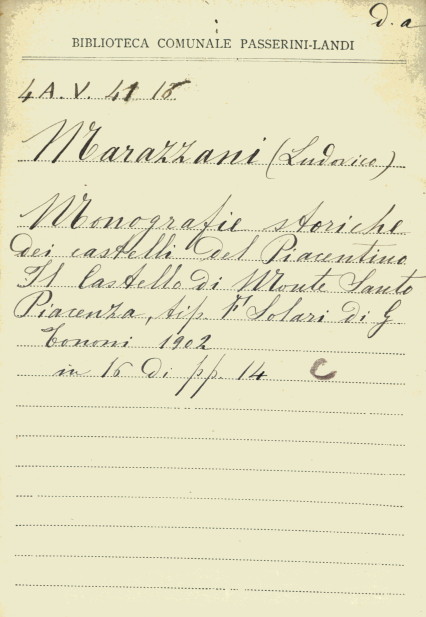 d. a
BIBLIOTECA COMUNALE PASSERINI-LANDI
4 A. V. 41 18
Marazzani (Ludovico)
Monografie storiche
dei castelli del Piacentino
Il Castello di Monte Santo
Piacenza, tip. F Solari di G
Tononi 1902
in 16 di pp. 14 C